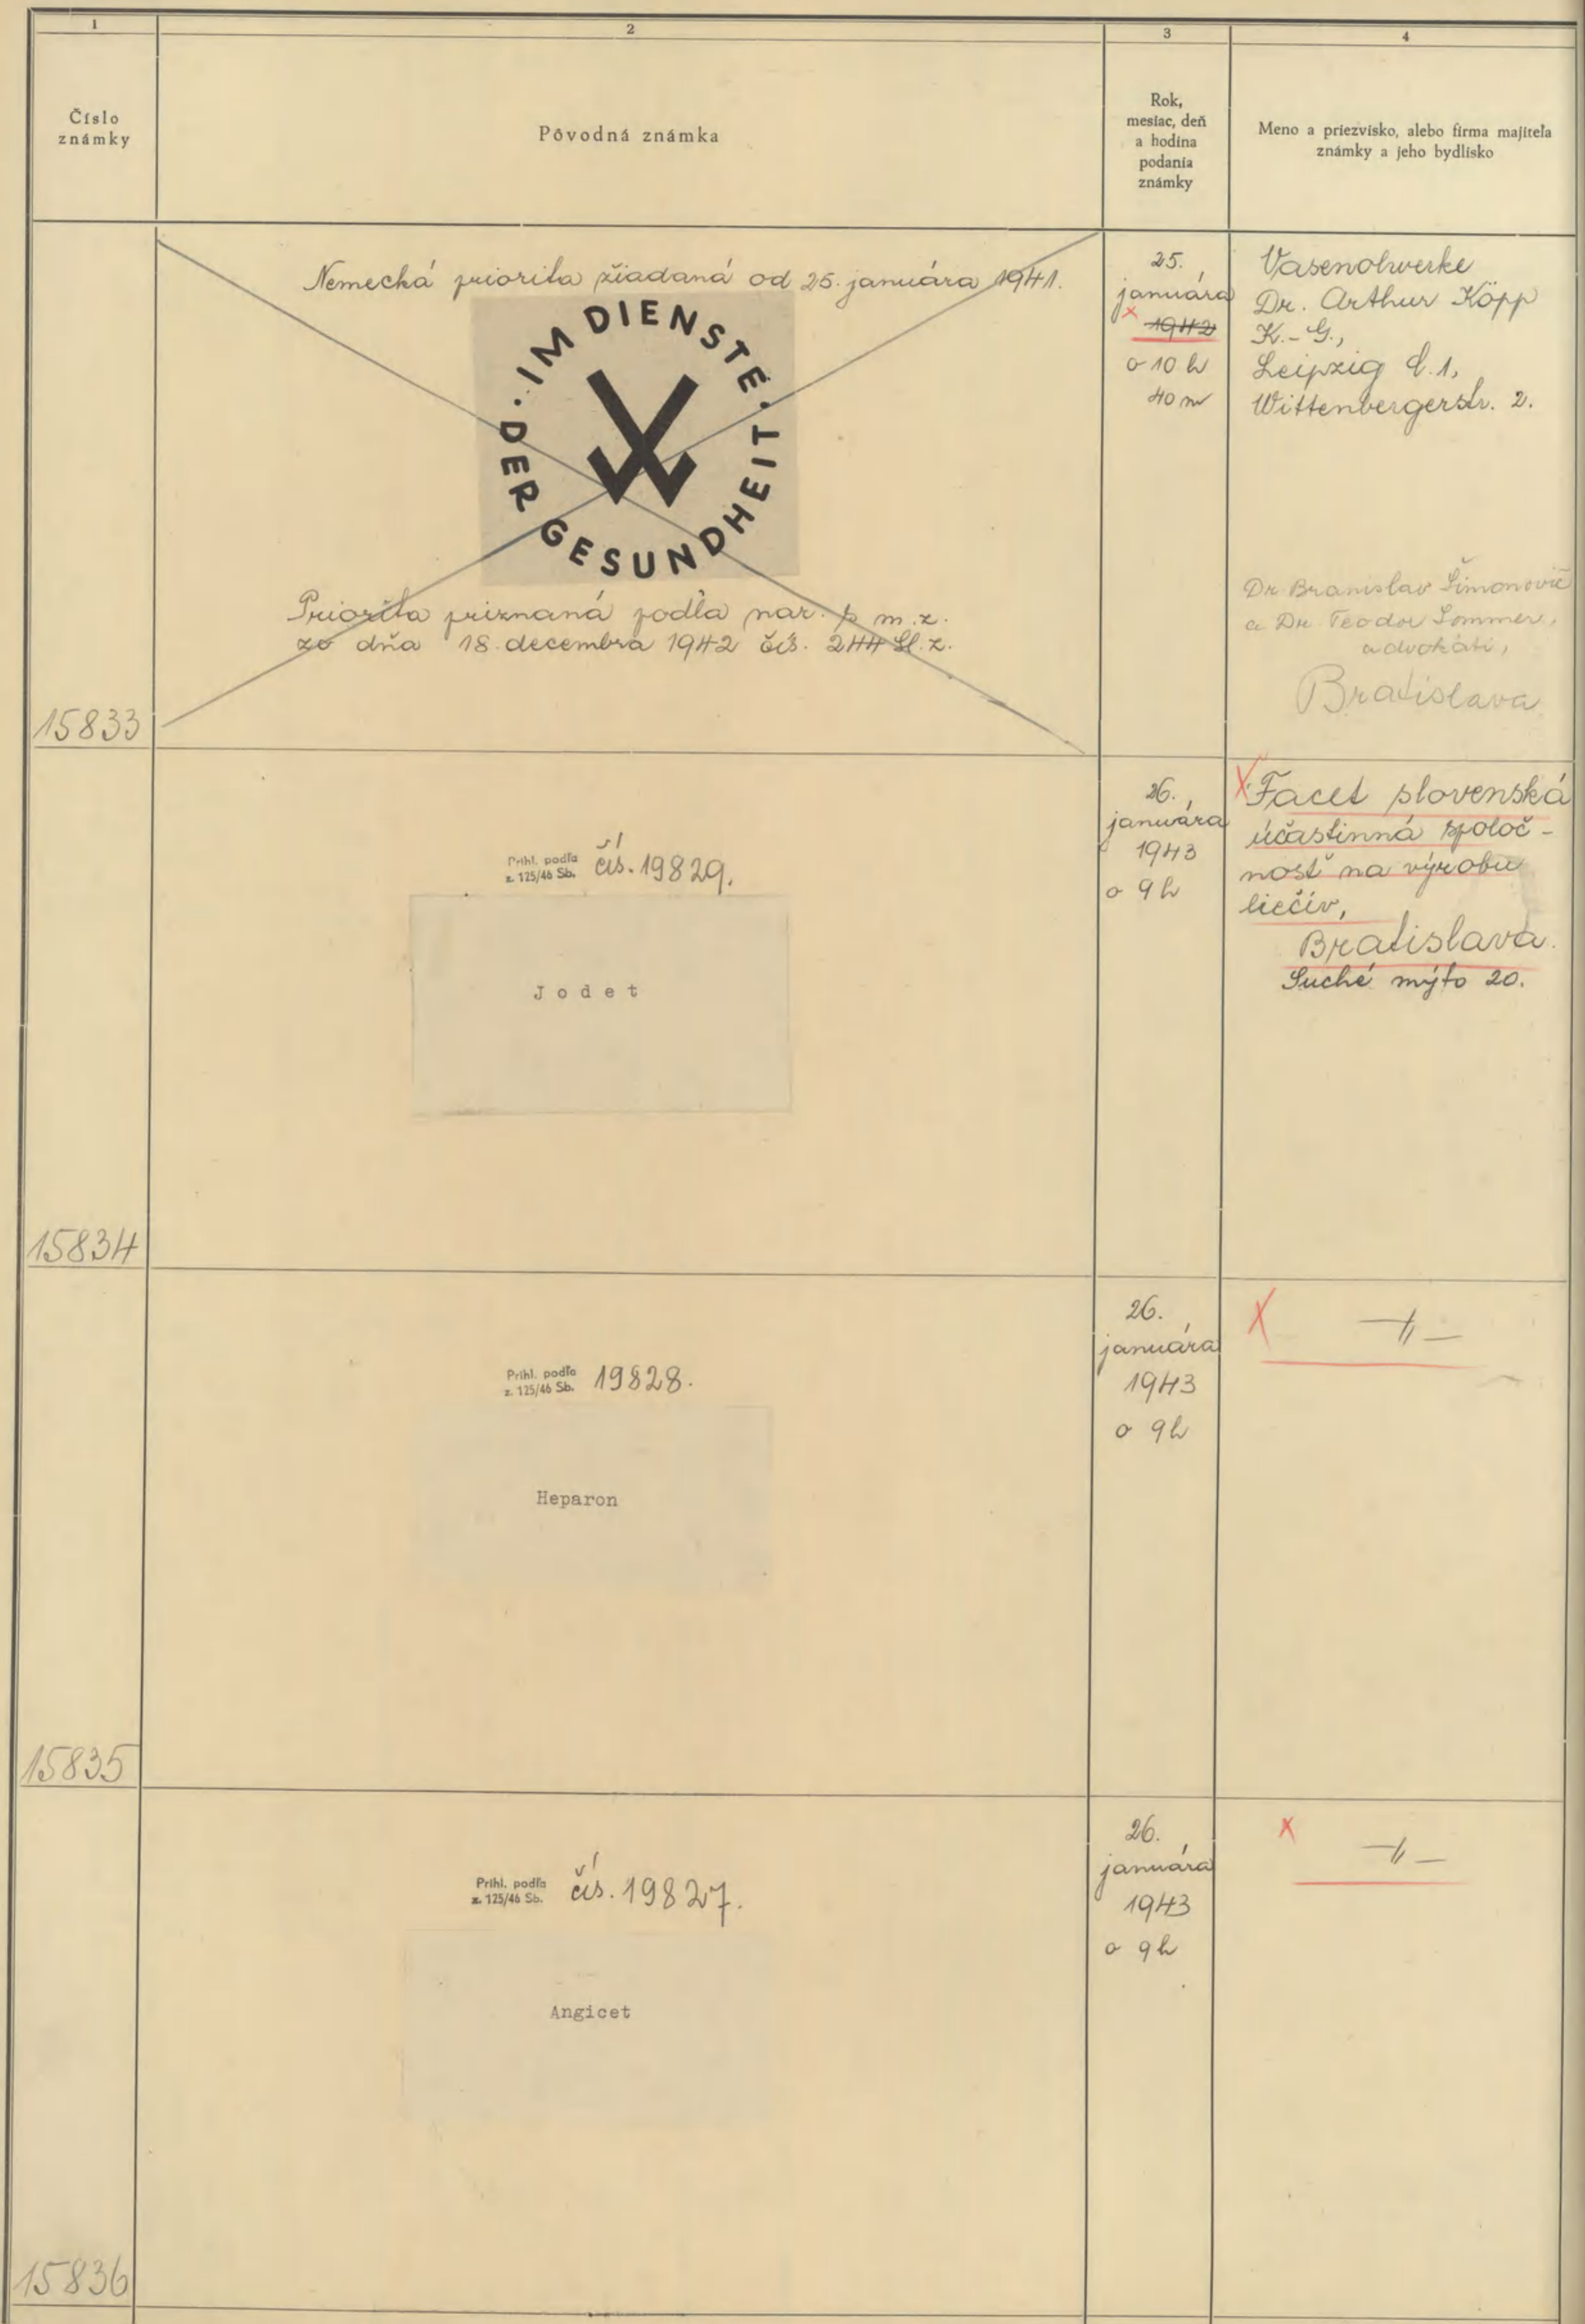 1
2
3
4
Číslo
známky
Pôvodná známka
Rok,
mesiac, deň
a hodina
podania
známky
Meno a priezvisko, alebo firma majiteľa
známky a jeho bydlisko
15833
Nemecká priorita žiadaná od 25. januára 1941.
· IM DIENSTE · DER GESUNDHEIT
Priorita priznaná podľa nar. s m. z.
zo dňa 18. decembra 1942 čís. 244 Sl. z.
25.
januára
x 1942
o 10 h
40 m
Vasenolwerke
Dr. Arthur Köpp
K.-G.,
Leipzig C.1,
Wittenbergerstr. 2.
Dr. Branislav Šimonovič
a Dr. Teodor Sommer,
advokáti,
Bratislava
15834
Prihl. podľa
z. 125/46 Sb. čís. 19829.
Jodet
26.
januára
1943
o 9 h
X Facet slovenská
účastinná spoloč-
nosť na výrobu
liečív,
Bratislava.
Suché mýto 20.
15835
Prihl. podľa
z. 125/46 Sb. 19828.
Heparon
26.
januára
1943
o 9 h
X —〃—
15836
Prihl. podľa
z. 125/46 Sb. čís. 19827.
Angicet
26.
januára
1943
o 9 h
x —〃—